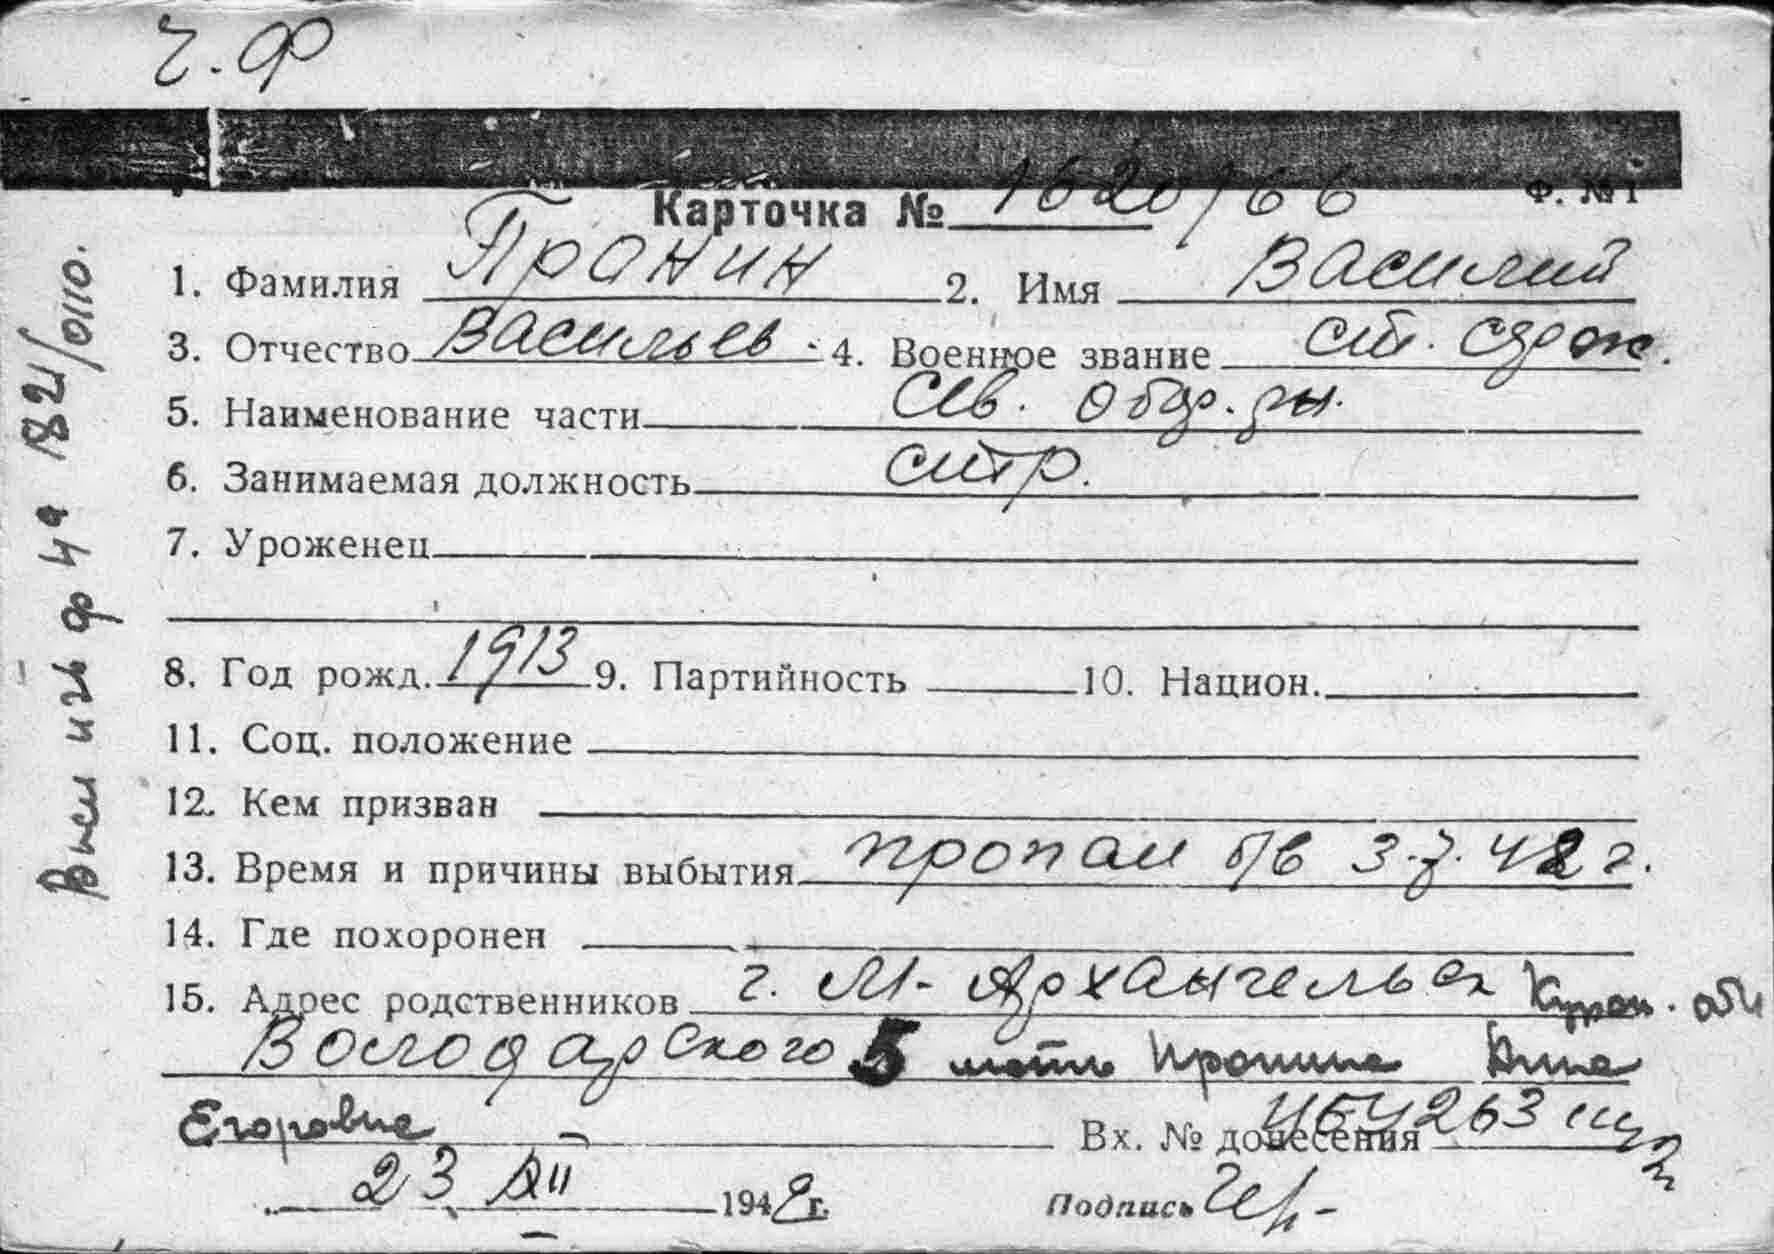 Ч.Ф
Карточка № 1620/66 Ф. №1
1. Фамилия Пронин 2. Имя Василий
3. Отчество Васильев. 4. Военное звание
5. Наименование части Сев. обор. рн.
6. Занимаемая должность стр.
7. Уроженец
8. Год рожд. 1913 9. Партийность 10. Национ.
11. Соц. положение
12. Кем призван
13. Время и причины выбытия пропал б/в 3.7.42 г.
14. Где похоронен
15. Адрес родственников г. М-Архангельск Курск. обл
Володарского 5 мать Пронина Анна
Егоровна
Вх. № донесения
23 XII 1948 г. Подпись